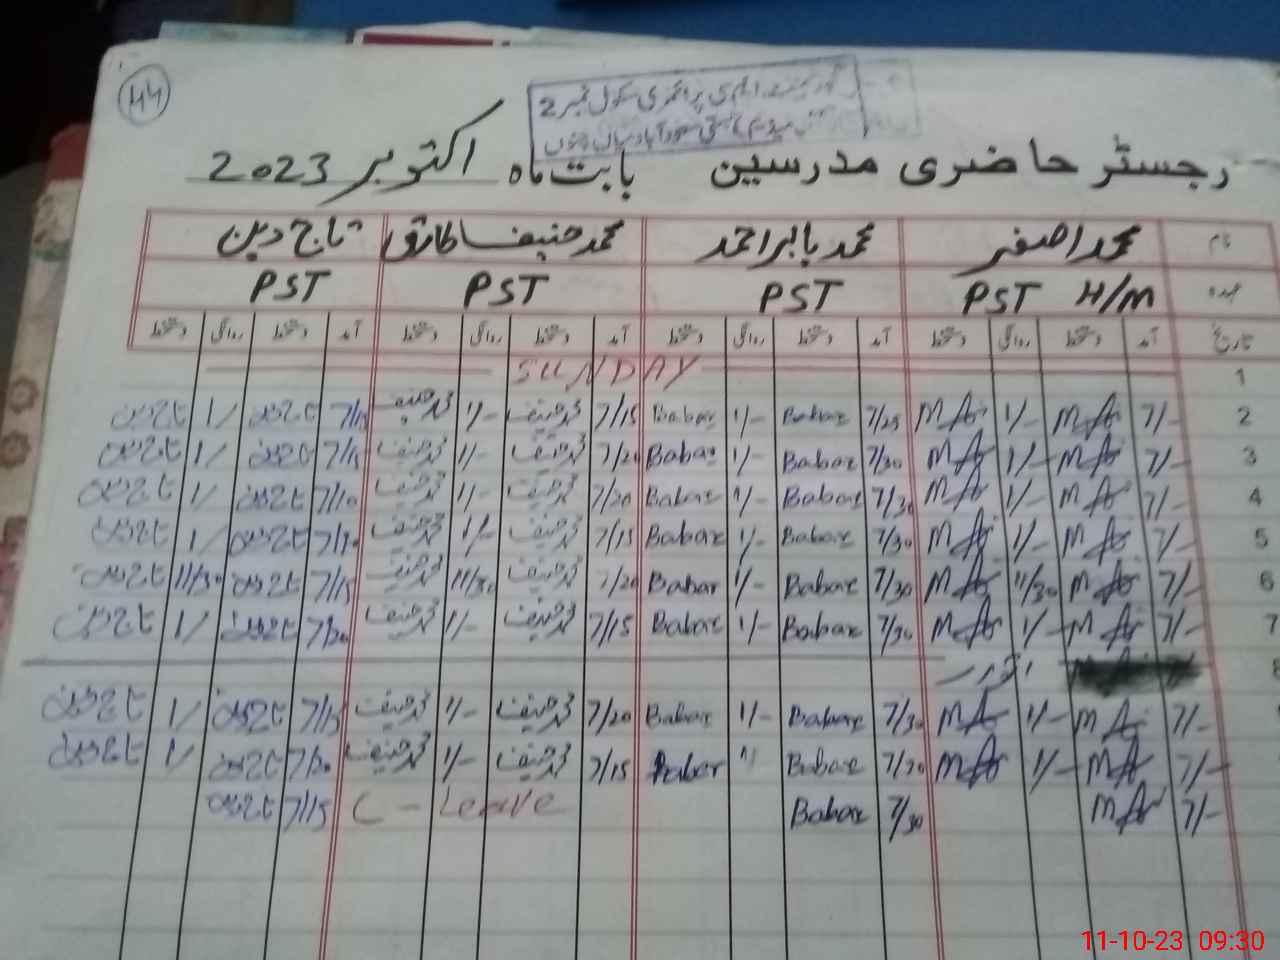 44
گورنمنٹ ایم سی پرائمری سکول نمبر 2
رجسٹر حاضری مدرسین بابت ماہ اکتوبر 2023
نام محمد اصغر محمد بابر احمد محمد حنیف طارق تاج دین
عہدہ PST H/M PST PST PST
تاریخ آمد دستخط روانگی دستخط آمد دستخط روانگی دستخط آمد دستخط روانگی دستخط آمد دستخط روانگی دستخط
1 SUNDAY
2 7/- 1/- 7/25 Babar 1/- Babar 7/15 محمد حنیف 1/- محمد حنیف 7/15 تاج دین 1/ تاج دین
3 7/- 1/- 7/30 Babar 1/- Babar 7/20 محمد حنیف 1/- محمد حنیف 7/15 تاج دین 1/ تاج دین
4 7/- 1/- 7/30 Babar 1/- Babar 7/20 محمد حنیف 1/- محمد حنیف 7/10 تاج دین 1/ تاج دین
5 7/- 1/- 7/30 Babar 1/- Babar 7/15 محمد حنیف 1/- محمد حنیف تاج دین 1/ تاج دین
6 7/- 11/30 7/30 Babar 1/- Babar 7/20 محمد حنیف 11/30 محمد حنیف 7/15 تاج دین 11/30 تاج دین
7 7/- 1/- 7/30 Babar 1/- Babar 7/15 محمد حنیف 1/- محمد حنیف 7/20 تاج دین 1/ تاج دین
8 اتوار
7/- 1/- 7/30 Babar 1/- Babar 7/20 محمد حنیف 1/- محمد حنیف 7/15 تاج دین 1/ تاج دین
7/- 1/- Babar Babar 7/15 محمد حنیف 1/- محمد حنیف 7/20 تاج دین 1/ تاج دین
7/- 7/30 Babar C - Leave 7/15 تاج دین
11-10-23 09:30